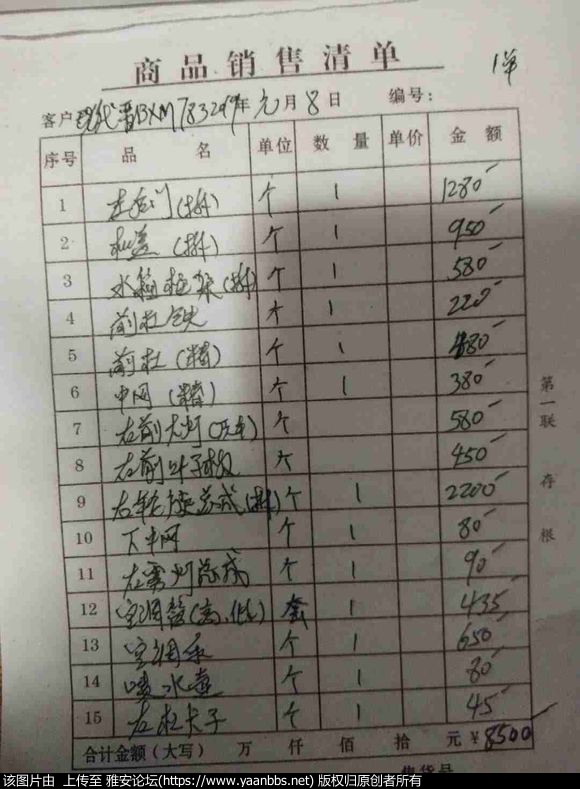 商品销售清单
1单
客户 现代晋BXM783 2019年 元月 8日 编号:
序号 品名 单位 数量 单价 金额
1 左后门(拆) 个 1 1280
2 机盖 (拆) 个 1 950
3 水箱框架(拆) 个 1 580
4 前杠铁 个 1 220
5 前杠 (精) 个 1 480
6 中网 (精) 个 1 380
7 左前大灯 个 580
8 左前叶子板 个 450
9 总成(拆) 个 1 2200
10 下中网 个 1 80
11 左雾灯总成 个 1 90
12 空调管(高、低) 套 1 435
13 空调泵 个 1 650
14 喷水壶 个 1 80
15 左杠卡子 个 1 45
合计金额(大写) 万 仟 佰 拾 元 ¥8500
第一联 存根
售货员
该图片由 上传至 雅安论坛(https://www.yaanbbs.net) 版权归原创者所有